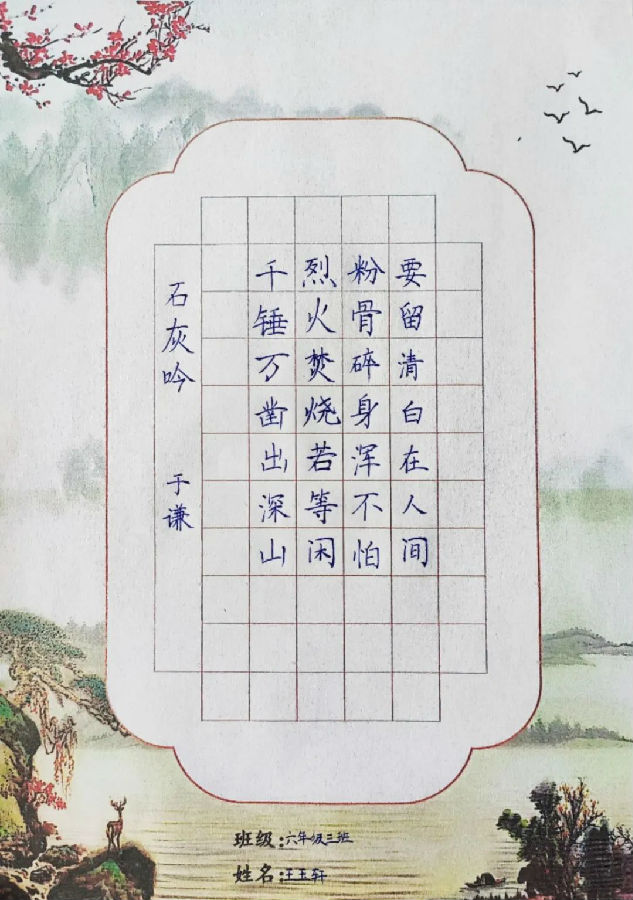 石灰吟 于谦
千锤万凿出深山
烈火焚烧若等闲
粉骨碎身浑不怕
要留清白在人间
班级:六年级三班
姓名:王玉轩